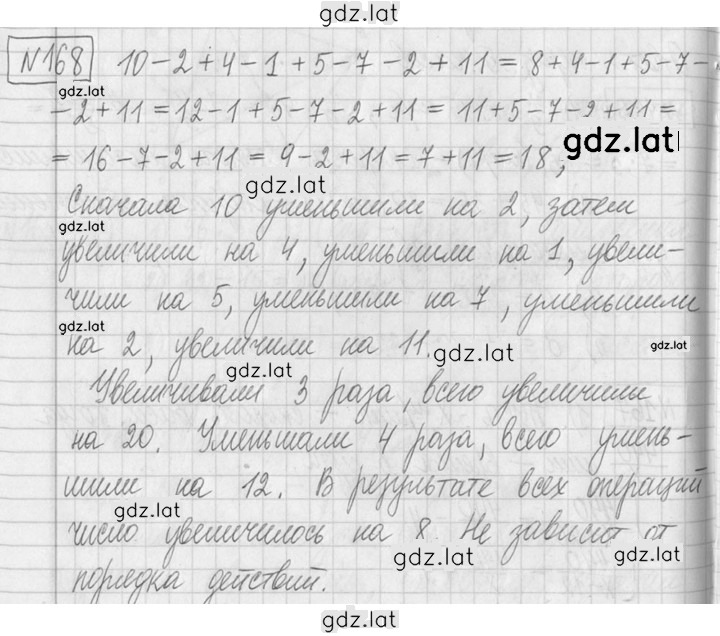 gdz.lat
№168 10-2+4-1+5-7-2+11=8+4-1+5-7-
gdz.lat
-2+11=12-1+5-7-2+11=11+5-7-2+11=
gdz.lat
=16-7-2+11=9-2+11=7+11=18;
gdz.lat
Сначала 10 уменьшили на 2, затем
gdz.lat
увеличили на 4, уменьшили на 1, увели-
чили на 5, уменьшили на 7, уменьшили
gdz.lat
на 2, увеличили на 11.
gdz.lat
gdz.lat
gdz.lat
Увеличивали 3 раза, всего увеличили
на 20. Уменьшали 4 раза, всего умень-
шили на 12. В результате всех операций
gdz.lat
число увеличилось на 8. Не зависит от
gdz.lat
gdz.lat
порядка действий.
gdz.lat